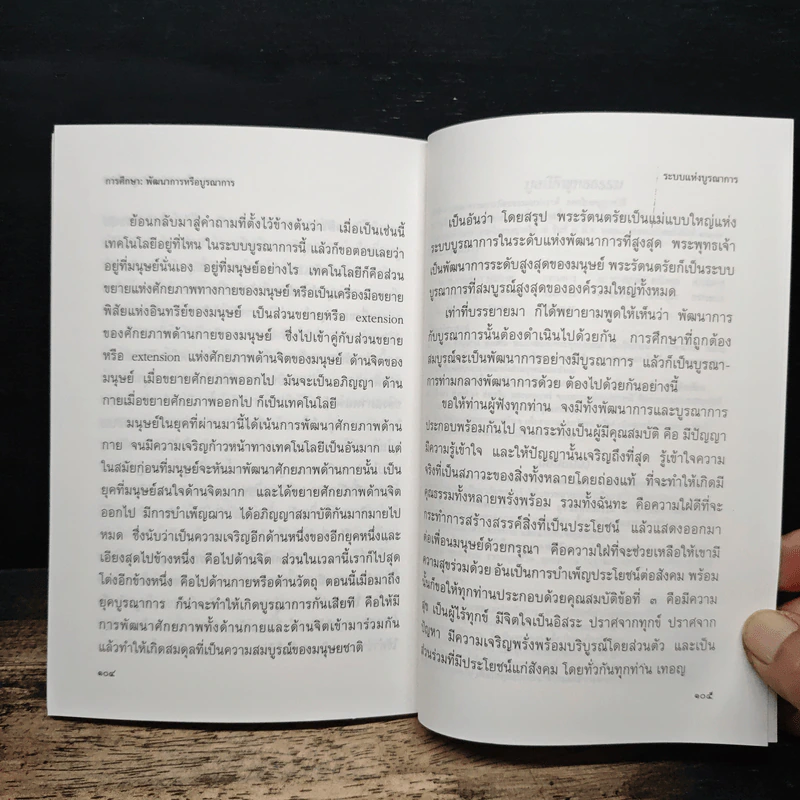 การศึกษา: พัฒนาการหรือบูรณาการ
ย้อนกลับมาสู่คำถามที่ตั้งไว้ข้างต้นว่า เมื่อเป็นเช่นนี้
เทคโนโลยีอยู่ที่ไหน ในระบบบูรณาการนี้ แล้วก็ขอตอบเลยว่า
อยู่ที่มนุษย์นั่นเอง อยู่ที่มนุษย์อย่างไร เทคโนโลยีก็คือส่วน
ขยายแห่งศักยภาพทางกายของมนุษย์ หรือเป็นเครื่องมือขยาย
พิสัยแห่งอินทรีย์ของมนุษย์ เป็นส่วนขยายหรือ extension
ของศักยภาพด้านกายของมนุษย์ ซึ่งไปเข้าคู่กับส่วนขยาย
หรือ extension แห่งศักยภาพด้านจิตของมนุษย์ ด้านจิตของ
มนุษย์ เมื่อขยายศักยภาพออกไป มันจะเป็นอภิญญา ด้าน
กายเมื่อขยายศักยภาพออกไป ก็เป็นเทคโนโลยี
มนุษย์ในยุคที่ผ่านมานี้ได้เน้นการพัฒนาศักยภาพด้าน
กาย จนมีความเจริญก้าวหน้าทางเทคโนโลยีเป็นอันมาก แต่
ในสมัยก่อนที่มนุษย์จะหันมาพัฒนาศักยภาพด้านกายนั้น เป็น
ยุคที่มนุษย์สนใจด้านจิตมาก และได้ขยายศักยภาพด้านจิต
ออกไป มีการบำเพ็ญฌาน ได้อภิญญาสมาบัติกันมากมายไป
หมด ซึ่งนับว่าเป็นความเจริญอีกด้านหนึ่งของอีกยุคหนึ่งและ
เอียงสุดไปข้างหนึ่ง คือไปด้านจิต ส่วนในเวลานี้เราก็ไปสุด
โต่งอีกข้างหนึ่ง คือไปด้านกายหรือด้านวัตถุ ตอนนี้เมื่อมาถึง
ยุคบูรณาการ ก็น่าจะทำให้เกิดบูรณาการกันเสียที คือให้มี
การพัฒนาศักยภาพทั้งด้านกายและด้านจิตเข้ามาร่วมกัน
แล้วทำให้เกิดสมดุลที่เป็นความสมบูรณ์ของมนุษยชาติ
๑๐๔
ระบบแห่งบูรณาการ
เป็นอันว่า โดยสรุป พระรัตนตรัยเป็นแม่แบบใหญ่แห่ง
ระบบบูรณาการในระดับแห่งพัฒนาการที่สูงสุด พระพุทธเจ้า
เป็นพัฒนาการระดับสูงสุดของมนุษย์ พระรัตนตรัยก็เป็นระบบ
บูรณาการที่สมบูรณ์สูงสุดขององค์รวมใหญ่ทั้งหมด
เท่าที่บรรยายมา ก็ได้พยายามพูดให้เห็นว่า พัฒนาการ
กับบูรณาการนั้นต้องดำเนินไปด้วยกัน การศึกษาที่ถูกต้อง
สมบูรณ์จะเป็นพัฒนาการอย่างมีบูรณาการ แล้วก็เป็นบูรณา-
การท่ามกลางพัฒนาการด้วย ต้องไปด้วยกันอย่างนี้
ขอให้ท่านผู้ฟังทุกท่าน จงมีทั้งพัฒนาการและบูรณาการ
ประกอบพร้อมกันไป จนกระทั่งเป็นผู้มีคุณสมบัติ คือ มีปัญญา
มีความรู้เข้าใจ และให้ปัญญานั้นเจริญถึงที่สุด รู้เข้าใจความ
จริงที่เป็นสภาวะของสิ่งทั้งหลายโดยถ่องแท้ ที่จะทำให้เกิดมี
คุณธรรมทั้งหลายพรั่งพร้อม รวมทั้งฉันทะ คือความใฝ่ดีที่จะ
กระทำการสร้างสรรค์สิ่งที่เป็นประโยชน์ แล้วแสดงออกมา
ต่อเพื่อนมนุษย์ด้วยกรุณา คือความใฝ่ที่จะช่วยเหลือให้เขามี
ความสุขร่วมด้วย อันเป็นการบำเพ็ญประโยชน์ต่อสังคม พร้อม
นั้นก็ขอให้ทุกท่านประกอบด้วยคุณสมบัติข้อที่ ๓ คือมีความ
สุข เป็นผู้ไร้ทุกข์ มีจิตใจเป็นอิสระ ปราศจากทุกข์ ปราศจาก
ปัญหา มีความเจริญพรั่งพร้อมบริบูรณ์โดยส่วนตัว และเป็น
ส่วนร่วมที่มีประโยชน์แก่สังคม โดยทั่วกันทุกท่าน เทอญ
๑๐๕